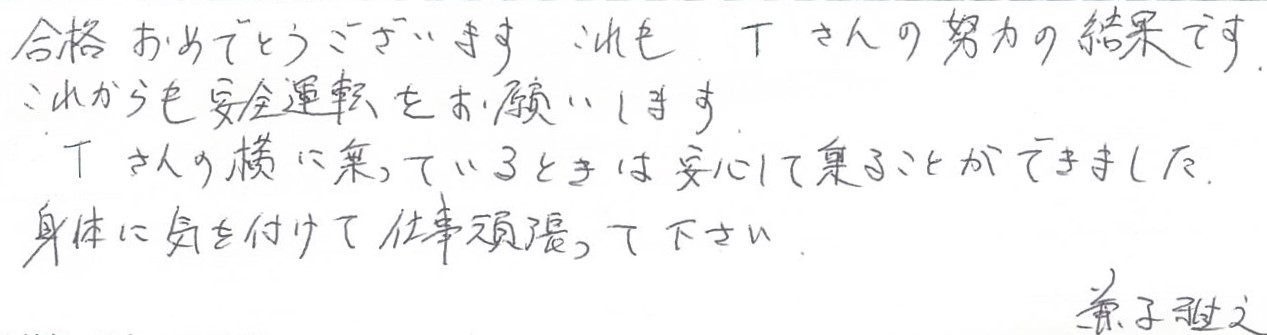 合格おめでとうございます これも Tさんの努力の結果です.
これからも安全運転をお願いします.
Tさんの横に乗っているときは安心して乗ることができました.
身体に気を付けて仕事頑張って下さい.
兼子雅之